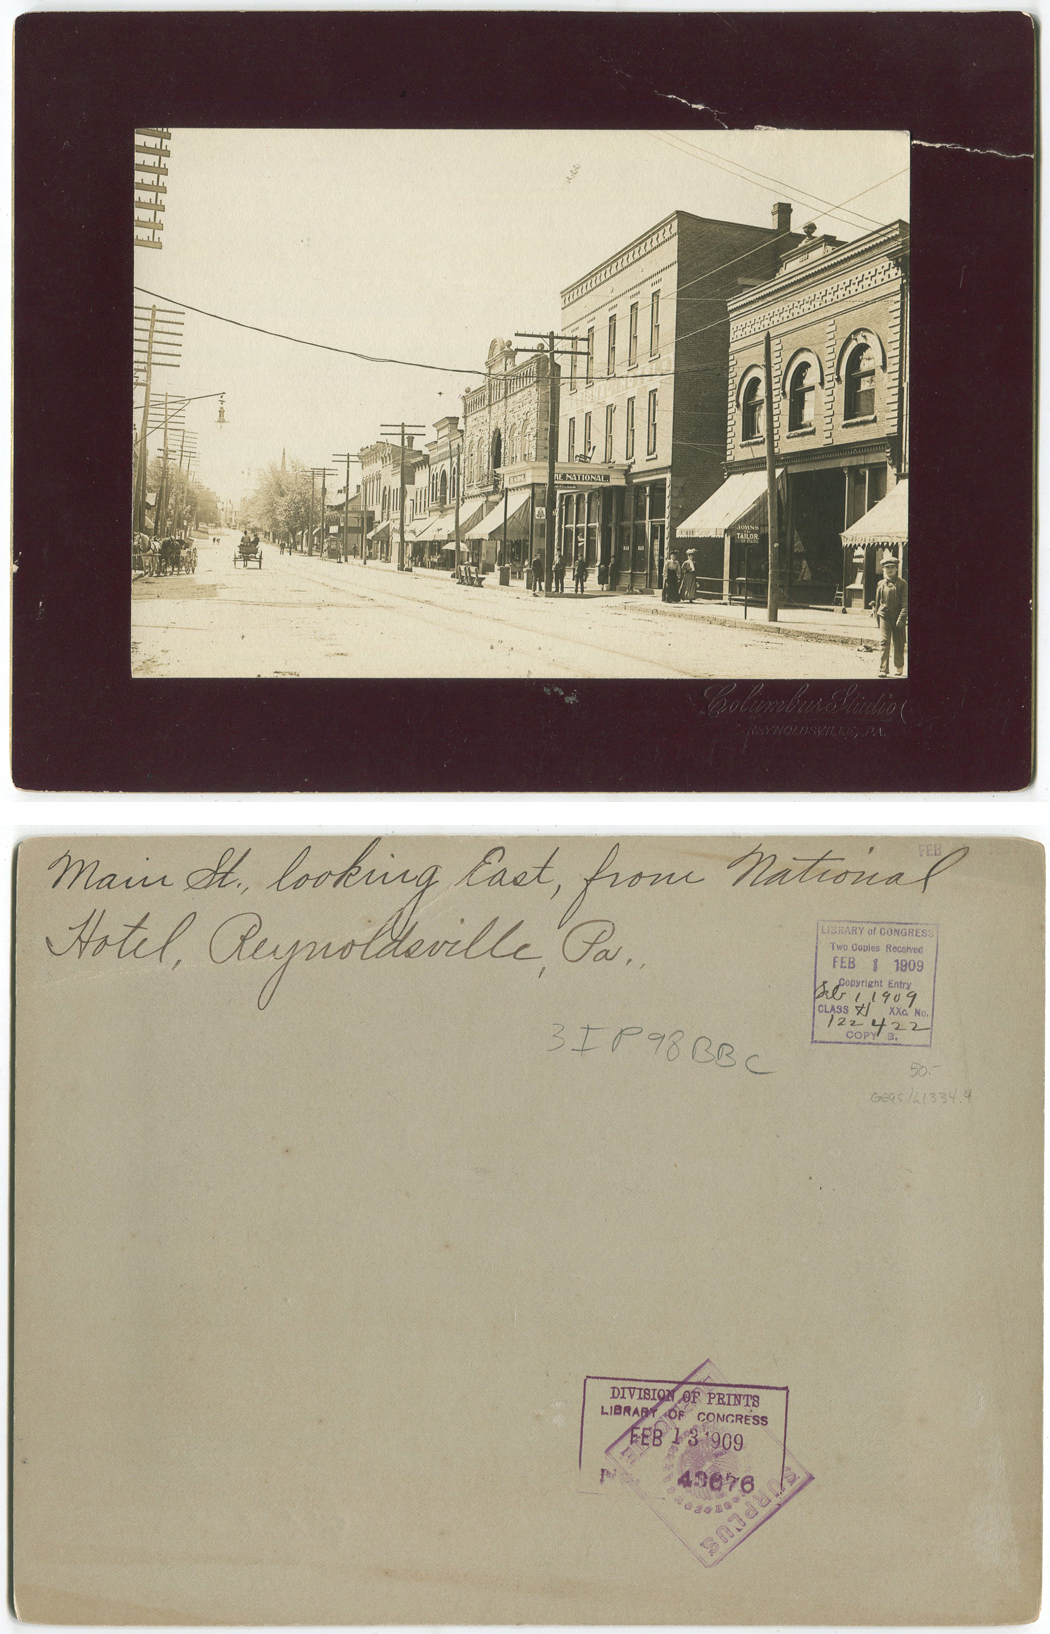 HE NATIONAL.
JOHNS
TAILOR
Columbus Studio
REYNOLDSVILLE, PA.
Main St., looking East, from National
Hotel, Reynoldsville, Pa.,
FEB
LIBRARY of CONGRESS
Two Copies Received
FEB 1 1909
Copyright Entry
Feb 1, 1909
CLASS XXc. No.
122422
COPY B.
3 I P 98 BBC
50.-
DIVISION OF PRINTS
LIBRARY OF CONGRESS
FEB 13 1909
43676
SURPLUS
DUPLICATE